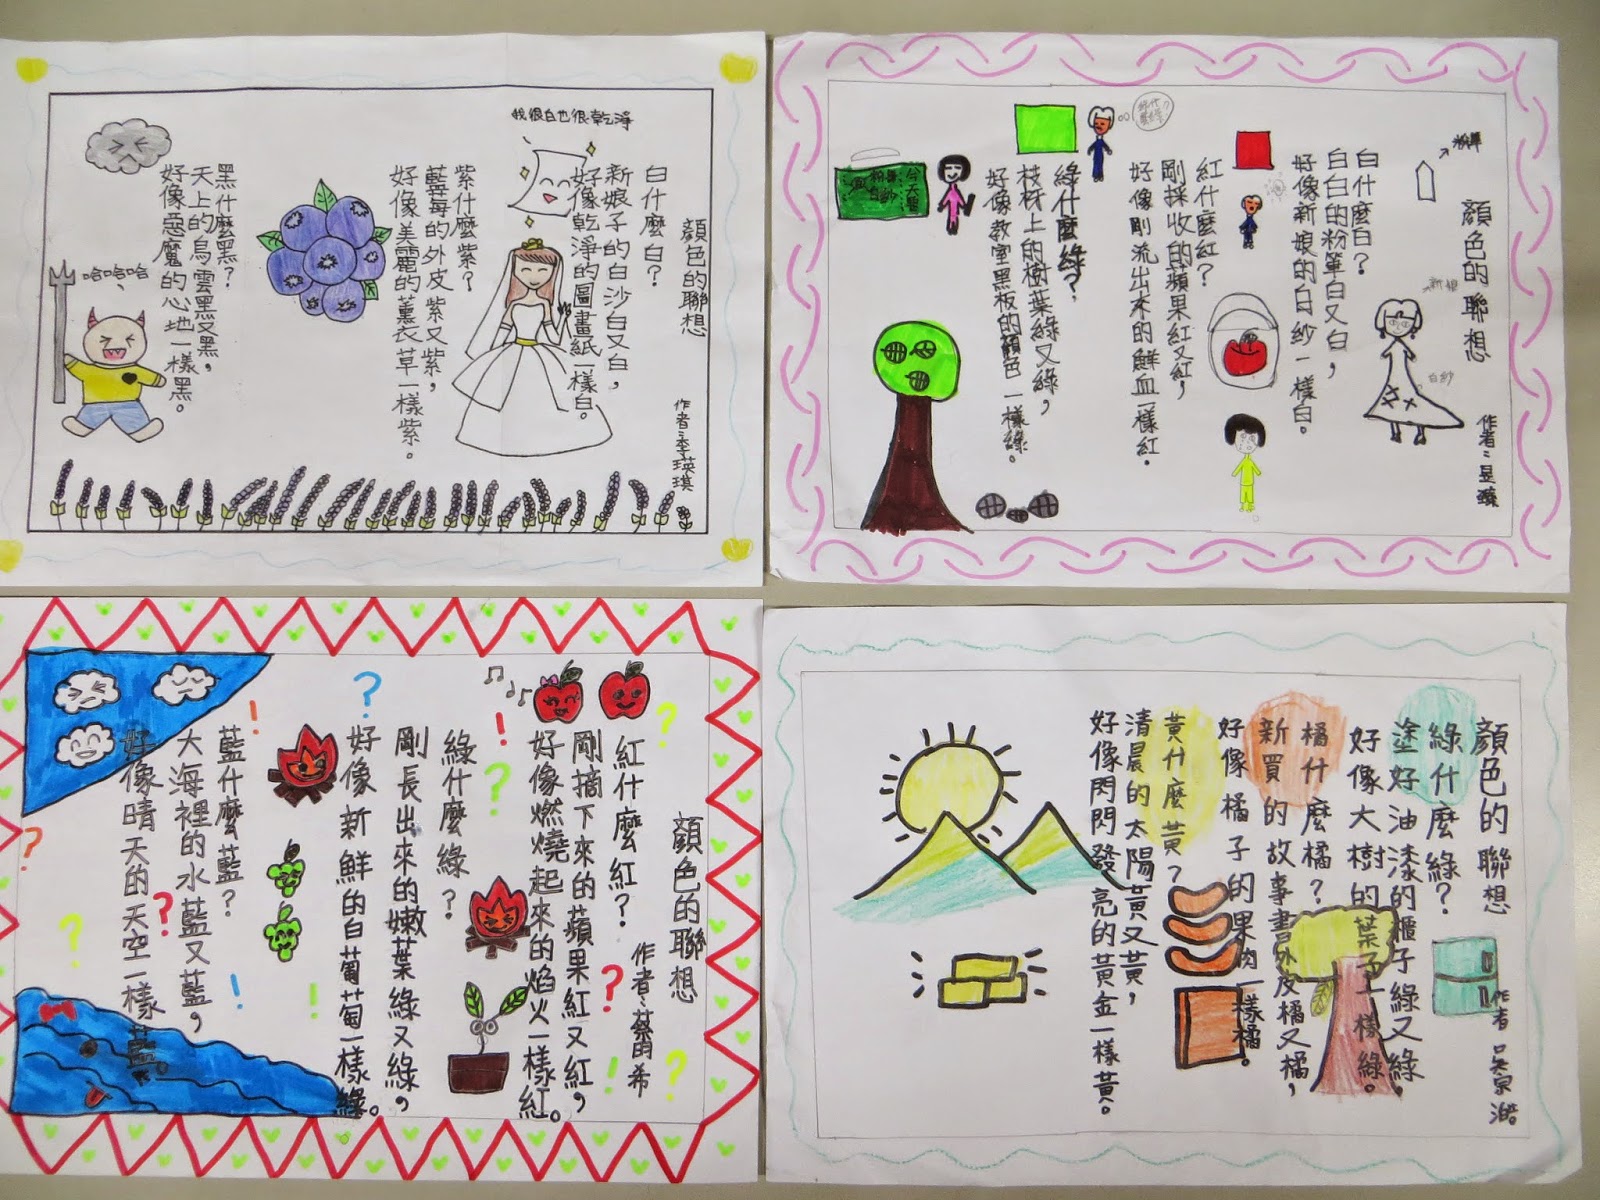 顏色的聯想
作者:李瑛琪
白什麼白?
新娘子的白沙白又白,
好像乾淨的圖畫紙一樣白。
我很白也很乾淨
紫什麼紫?
藍莓的外皮紫又紫,
好像美麗的薰衣草一樣紫。
黑什麼黑?
天上的烏雲黑又黑,
好像惡魔的心地一樣黑。
哈哈哈哈
顏色的聯想
作者:昱
粉筆
新娘
白紗
白什麼白?
白白的粉筆白又白,
好像新娘的白紗一樣白。
紅什麼紅?
剛採收的蘋果紅又紅,
好像剛流出來的鮮血一樣紅。
綠什麼綠?
枝枒上的樹葉綠又綠,
好像教室黑板的顏色一樣綠。
今天要
粉筆
白紗
顏色的聯想
作者:蔡玥希
紅什麼紅?
剛摘下來的蘋果紅又紅,
好像燃燒起來的焰火一樣紅。
綠什麼綠?
剛長出來的嫩葉綠又綠,
好像新鮮的白葡萄一樣綠。
藍什麼藍?
大海裡的水藍又藍,
好像晴天的天空一樣藍。
顏色的聯想
作者 吳宗
綠什麼綠?
塗好油漆的櫃子綠又綠,
好像大樹的葉子一樣綠。
橘什麼橘?
新買的故事書外皮橘又橘,
好像橘子的果肉一樣橘。
黃什麼黃?
清晨的太陽黃又黃,
好像閃閃發亮的黃金一樣黃。